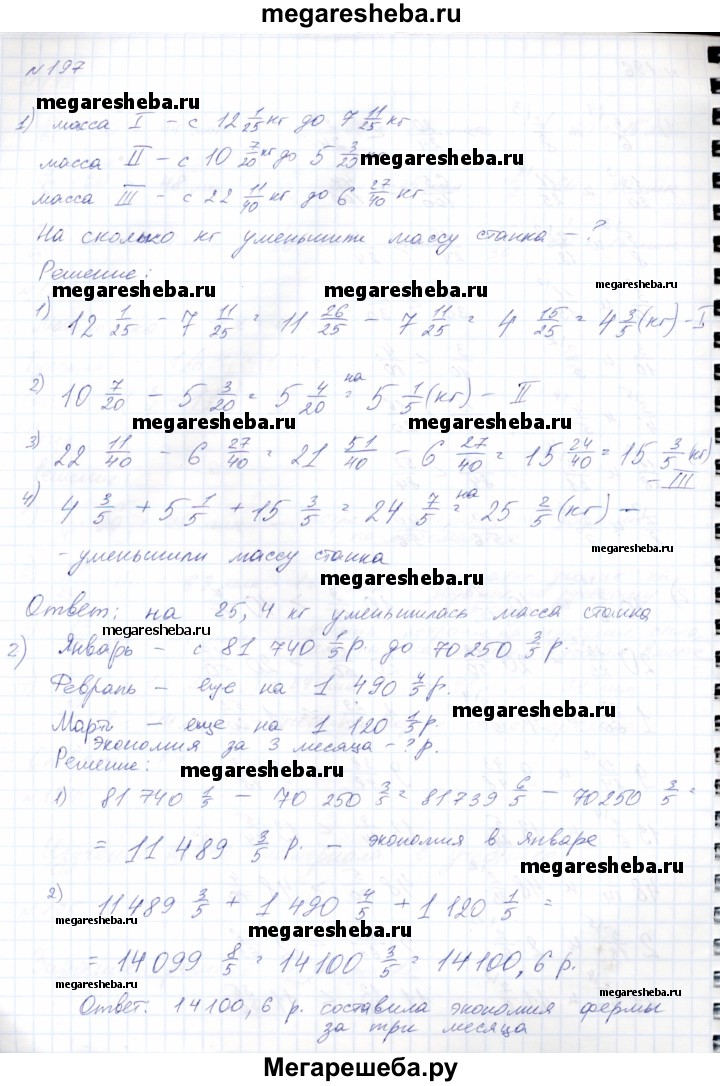 megaresheba.ru
№197
megaresheba.ru
1) масса I – с 12 1/25 кг до 7 11/25 кг
масса II – с 10 7/20 кг до 5 3/20
megaresheba.ru
масса III – с 22 11/40 кг до 6 27/40 кг
На сколько кг уменьшили массу станка – ?
Решение:
megaresheba.ru
megaresheba.ru
megaresheba.ru
1) 12 1/25 - 7 11/25 = 11 26/25 - 7 11/25 = 4 15/25 = 4 3/5 (кг) - I
2) 10 7/20 - 5 3/20 = 5 4/20 = 5 1/5 (кг) - II
на
megaresheba.ru
megaresheba.ru
3) 22 11/40 - 6 27/40 = 21 51/40 - 6 27/40 = 15 24/40 = 15 3/5 кг)
- III
4) 4 3/5 + 5 1/5 + 15 3/5 = 24 7/5 = 25 2/5 (кг) -
на
megaresheba.ru
- уменьшили массу станка
megaresheba.ru
Ответ: на 25,4 кг уменьшилась масса станка
megaresheba.ru
2) Январь – с 81 740 1/5 р. до 70250 3/5 р.
Февраль – еще на 1 490 4/5 р.
megaresheba.ru
Март – еще на 1 120 1/5 р.
экономия за 3 месяца - ? р.
Решение:
megaresheba.ru
1) 81 740 1/5 - 70 250 3/5 = 81739 6/5 - 70250 3/5 =
= 11 489 3/5 р. – экономия в январе
megaresheba.ru
2) 11489 3/5 + 1 490 4/5 + 1 120 1/5 =
megaresheba.ru
megaresheba.ru
= 14 099 8/5 = 14100 3/5 = 14100,6 р.
megaresheba.ru
megaresheba.ru
megaresheba.ru
Ответ. 14100,6 р. составила экономия фермы
за три месяца
Мегарешеба.ру